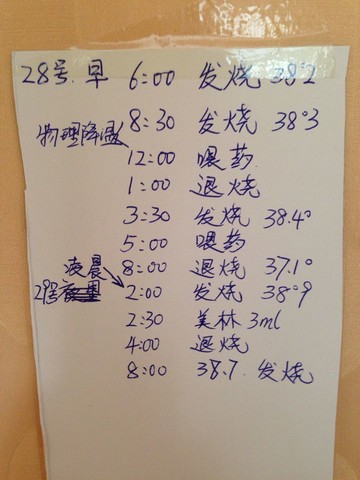 28号.早 6:00 发烧 38°2
物理降温 8:30 发烧 38°3
12:00 喂药.
1:00 退烧
3:30 发烧 38.4°
5:00 喂药
8:00 退烧 37.1°
凌晨
29号 2:00 发烧 38°9
2:30 美林 3ml
4:00 退烧
8:00 38.7. 发烧